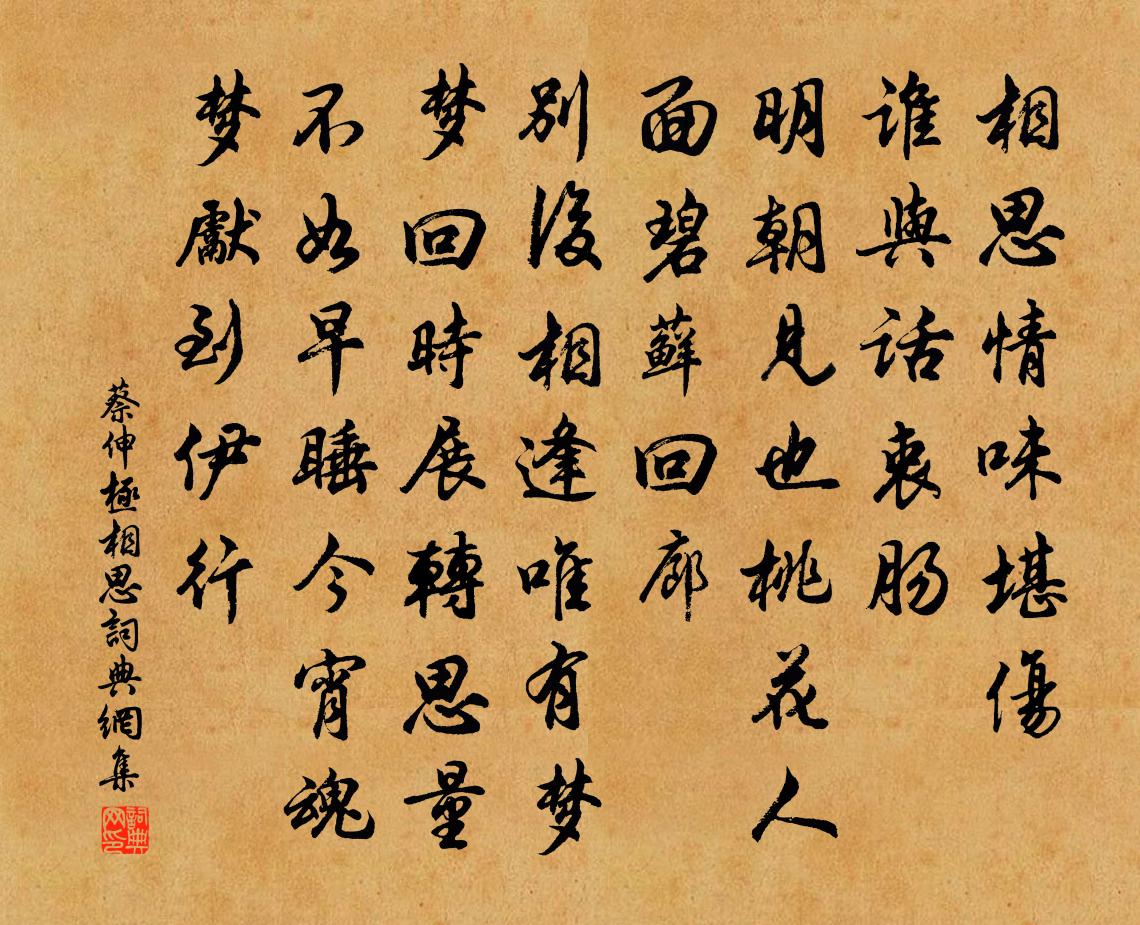 相思情味堪傷
谁與話衷肠
明朝見也桃花人
面碧蘚回廊
别後相逢唯有梦
梦回時展轉思量
不如早睡今宵魂
梦獻到伊行
蔡伸極相思詞典網集
詞典
网印